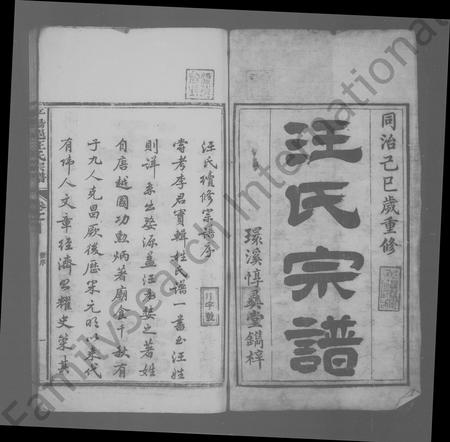 同治己巳歲重修
汪氏宗譜
環溪惇彝堂鐫梓
汪氏續修宗譜序
嘗考李君實輯姓氏譜一書至汪姓
則詳系出婺源蓋汪為婺之著姓
自唐越國功勲炳著廟食千秋有
子九人克昌厥後歷宋元明以來代
有偉人文章經濟照耀史策其
汪氏宗譜
舊序
一
FamilySearch International